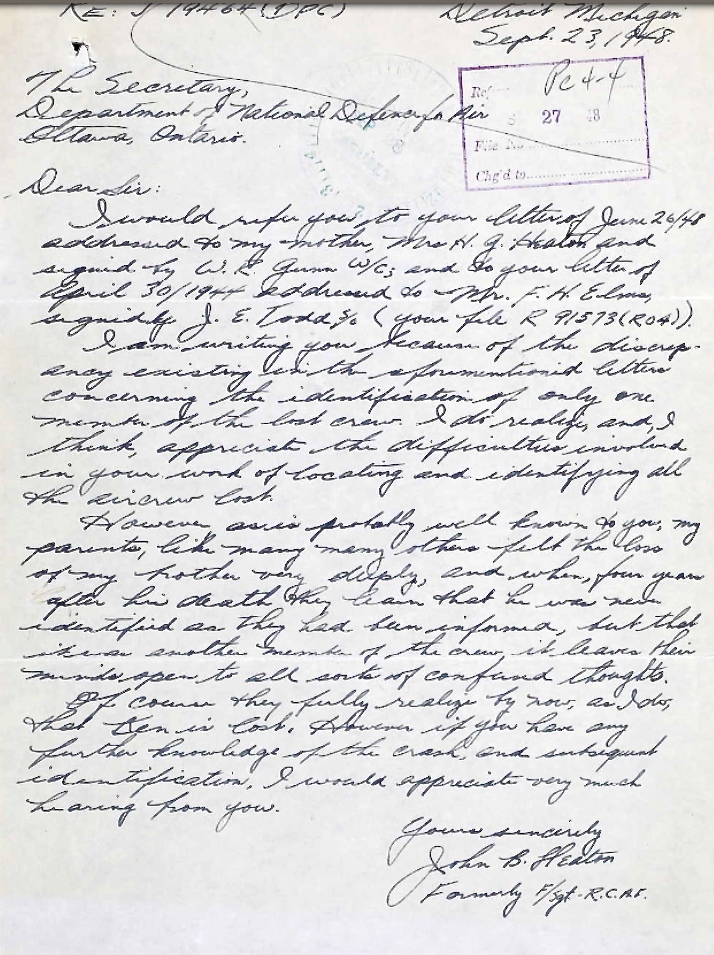 RE: J 19464 (DPC)
Detroit Michigan
Sept. 23, 1948.
The Secretary,
Department of National Defence for Air
Ottawa, Ontario.
Ref Pc 4-4
S 27 48
File No
Chg'd to
Dear Sir:
I would refer you to your letter of June 26/48
addressed to my mother, Mrs H. G. Heaton and
signed by W. R. Gunn W/C; and to your letter of
April 30/1944 addressed to Mr. F. H. Elms,
signed by J. E. Todd, S/O (your file R 91573 (RO4)).
I am writing you because of the discrep-
ancy existing in the aforementioned letters
concerning the identification of only one
member of the lost crew. I do realize, and, I
think, appreciate the difficulties involved
in your work of locating and identifying all
the aircrew lost.
However, as is probably well known to you, my
parents, like many many others felt the loss
of my brother very deeply, and when, four years
after his death they learn that he was never
identified as they had been informed, but that
it was another member of the crew, it leaves their
minds open to all sorts of confused thoughts.
Of course they fully realize by now, as I do,
that Ken is lost. However if you have any
further knowledge of the crash, and subsequent
identification, I would appreciate very much
hearing from you.
Yours sincerely
John B. Heaton
Formerly F/Sgt - R.C.A.F.